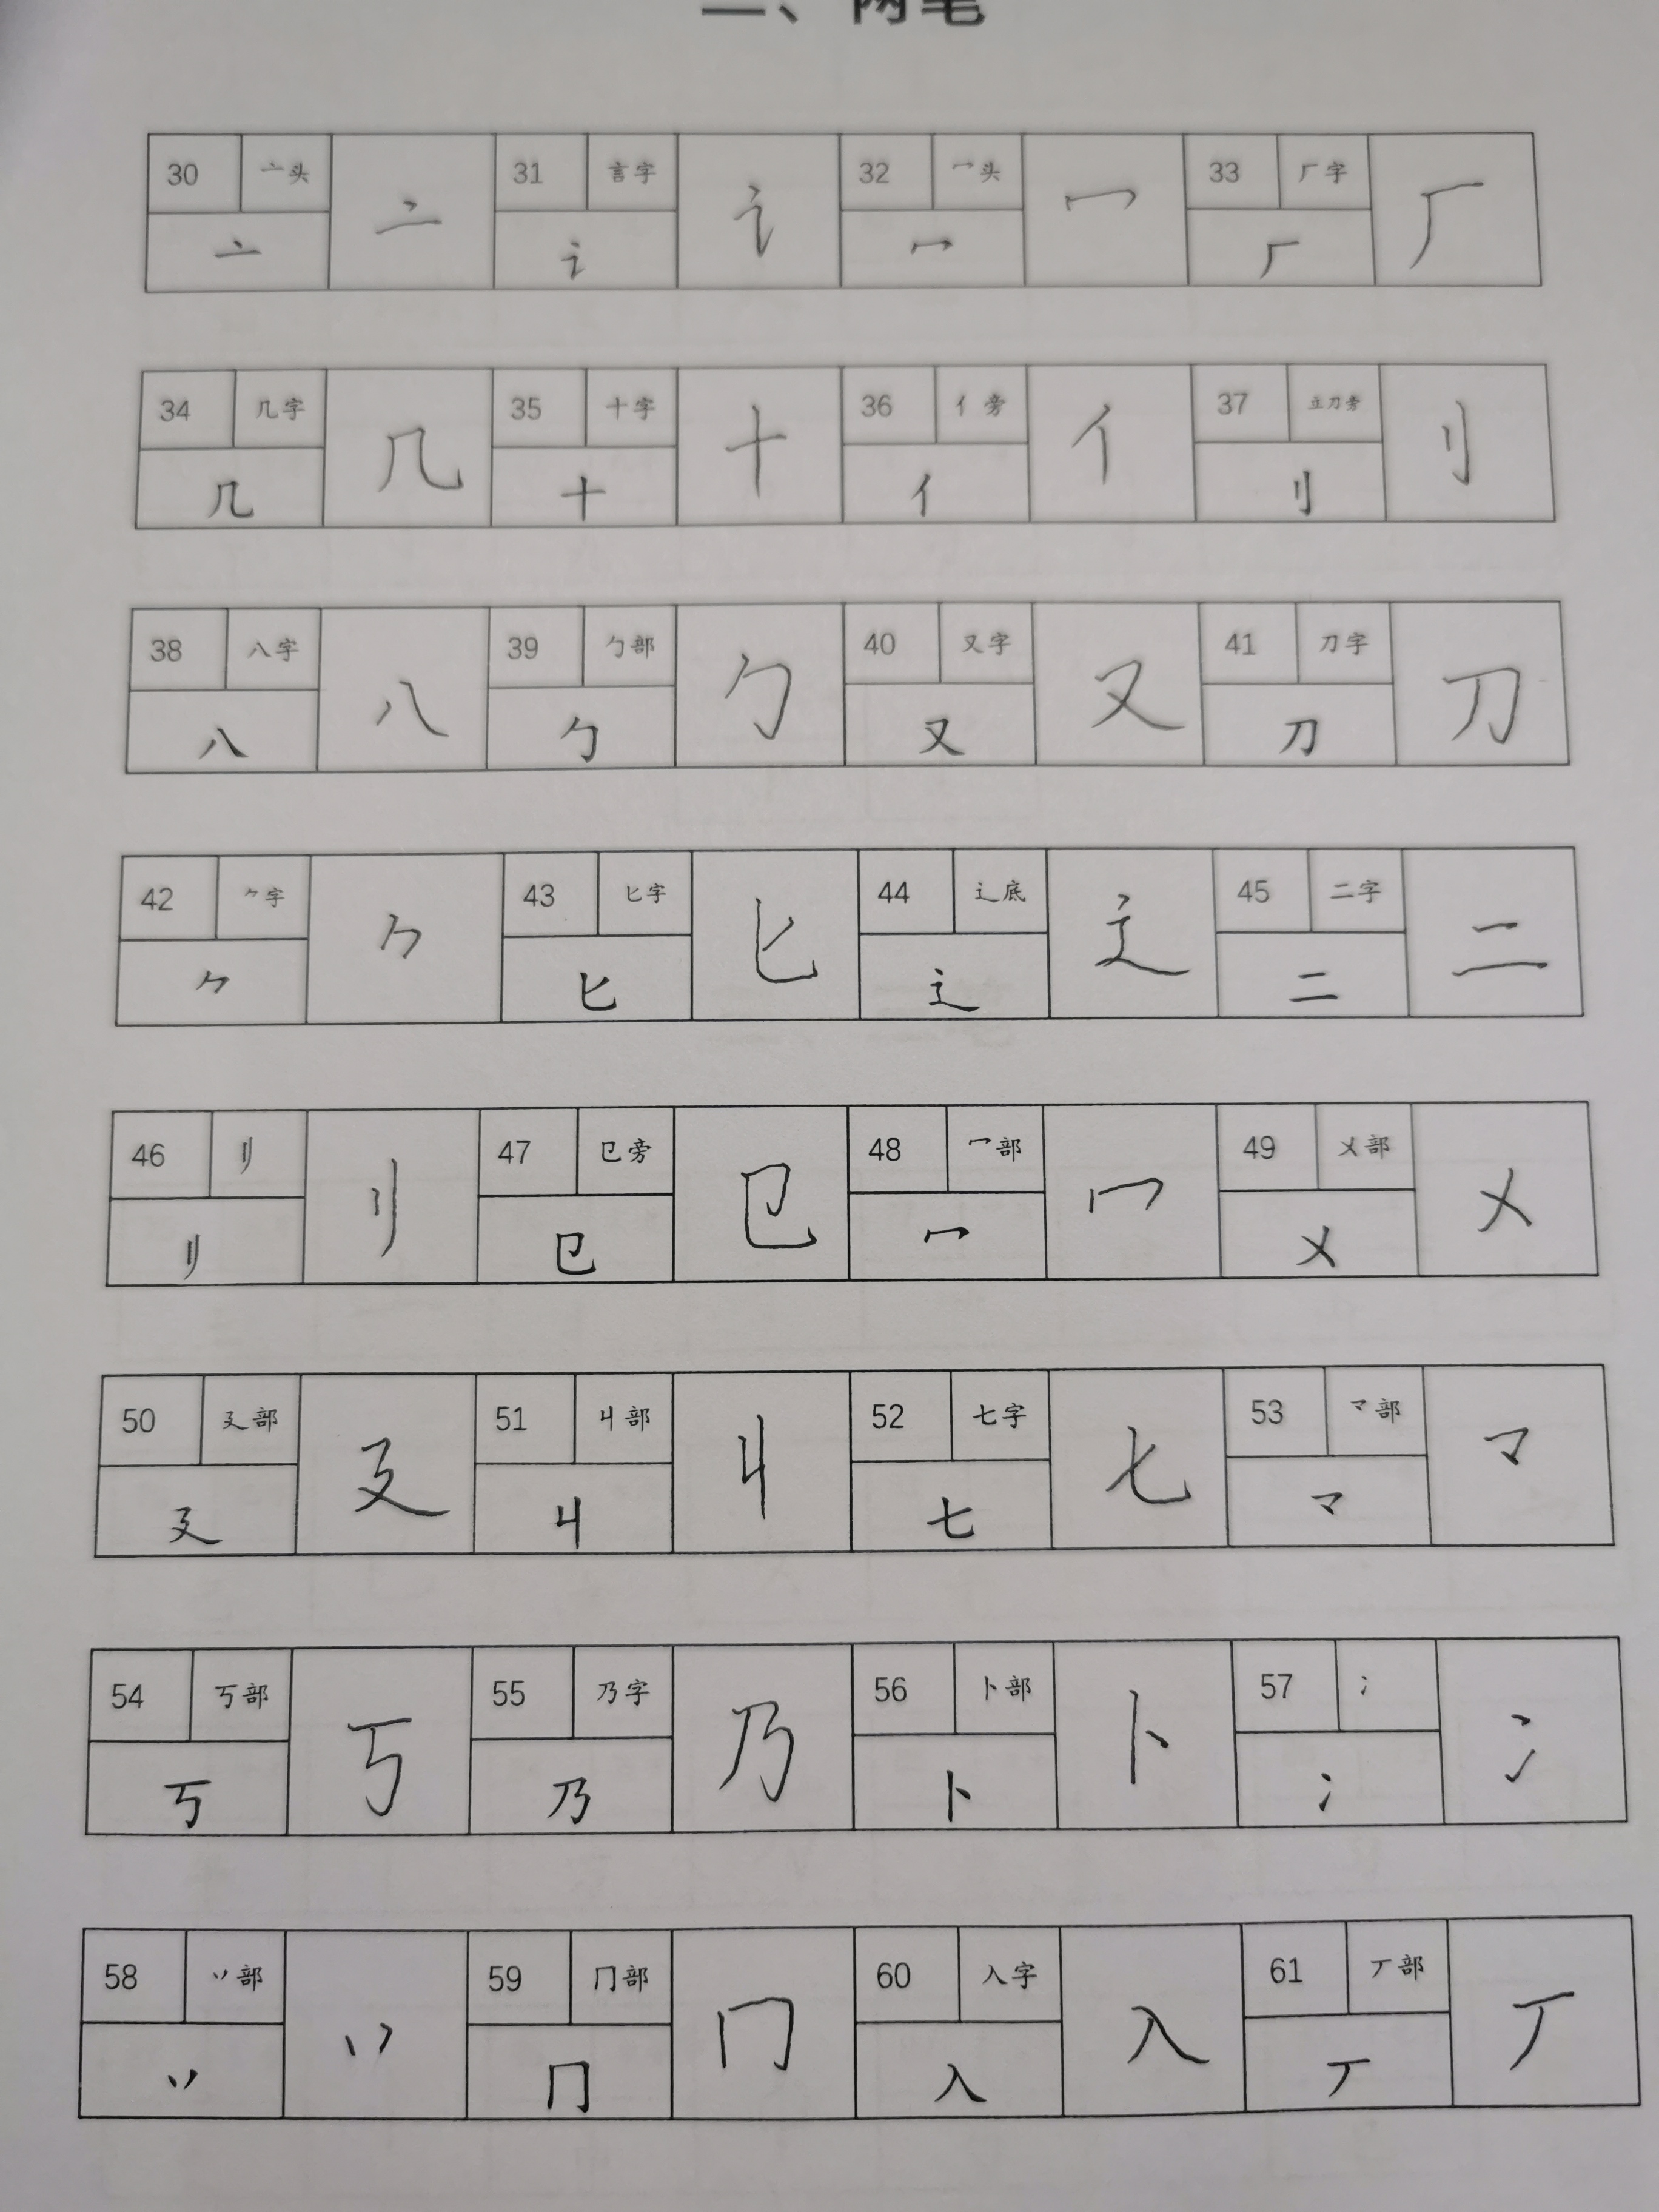 二、两笔
30 亠头 亠 31 言字 讠 讠 32 冖头 冖 33 厂字 厂
亠 讠 冖 厂
34 几字 几 35 十字 十 36 亻旁 亻 37 立刀旁 刂
几 十 亻 刂
38 八字 八 39 勹部 勹 40 又字 又 41 刀字 刀
八 勹 又 刀
42 𠂊字 𠂊 43 匕字 匕 44 辶底 辶 45 二字 二
𠂊 匕 辶 二
46 〢 〢 47 㔾旁 㔾 48 冖部 冖 49 㐅部 㐅
〢 㔾 冖 㐅
50 廴部 廴 51 丩部 丩 52 七字 七 53 龴部 龴
廴 丩 七 龴
54 丂部 丂 55 乃字 乃 56 卜部 卜 57 冫 冫
丂 乃 卜 冫
58 丷部 丷 59 冂部 冂 60 入字 入 61 丆部 丆
丷 冂 入 丆